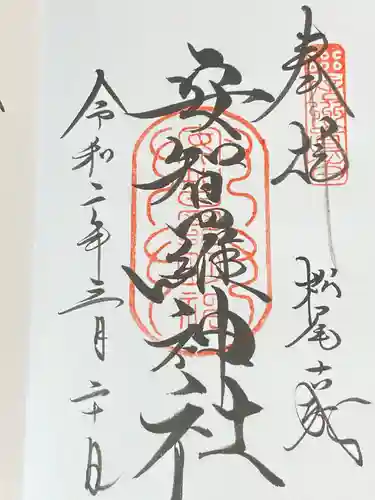 奉拝
松尾十貮
安智羅神社
令和二年三月二十日